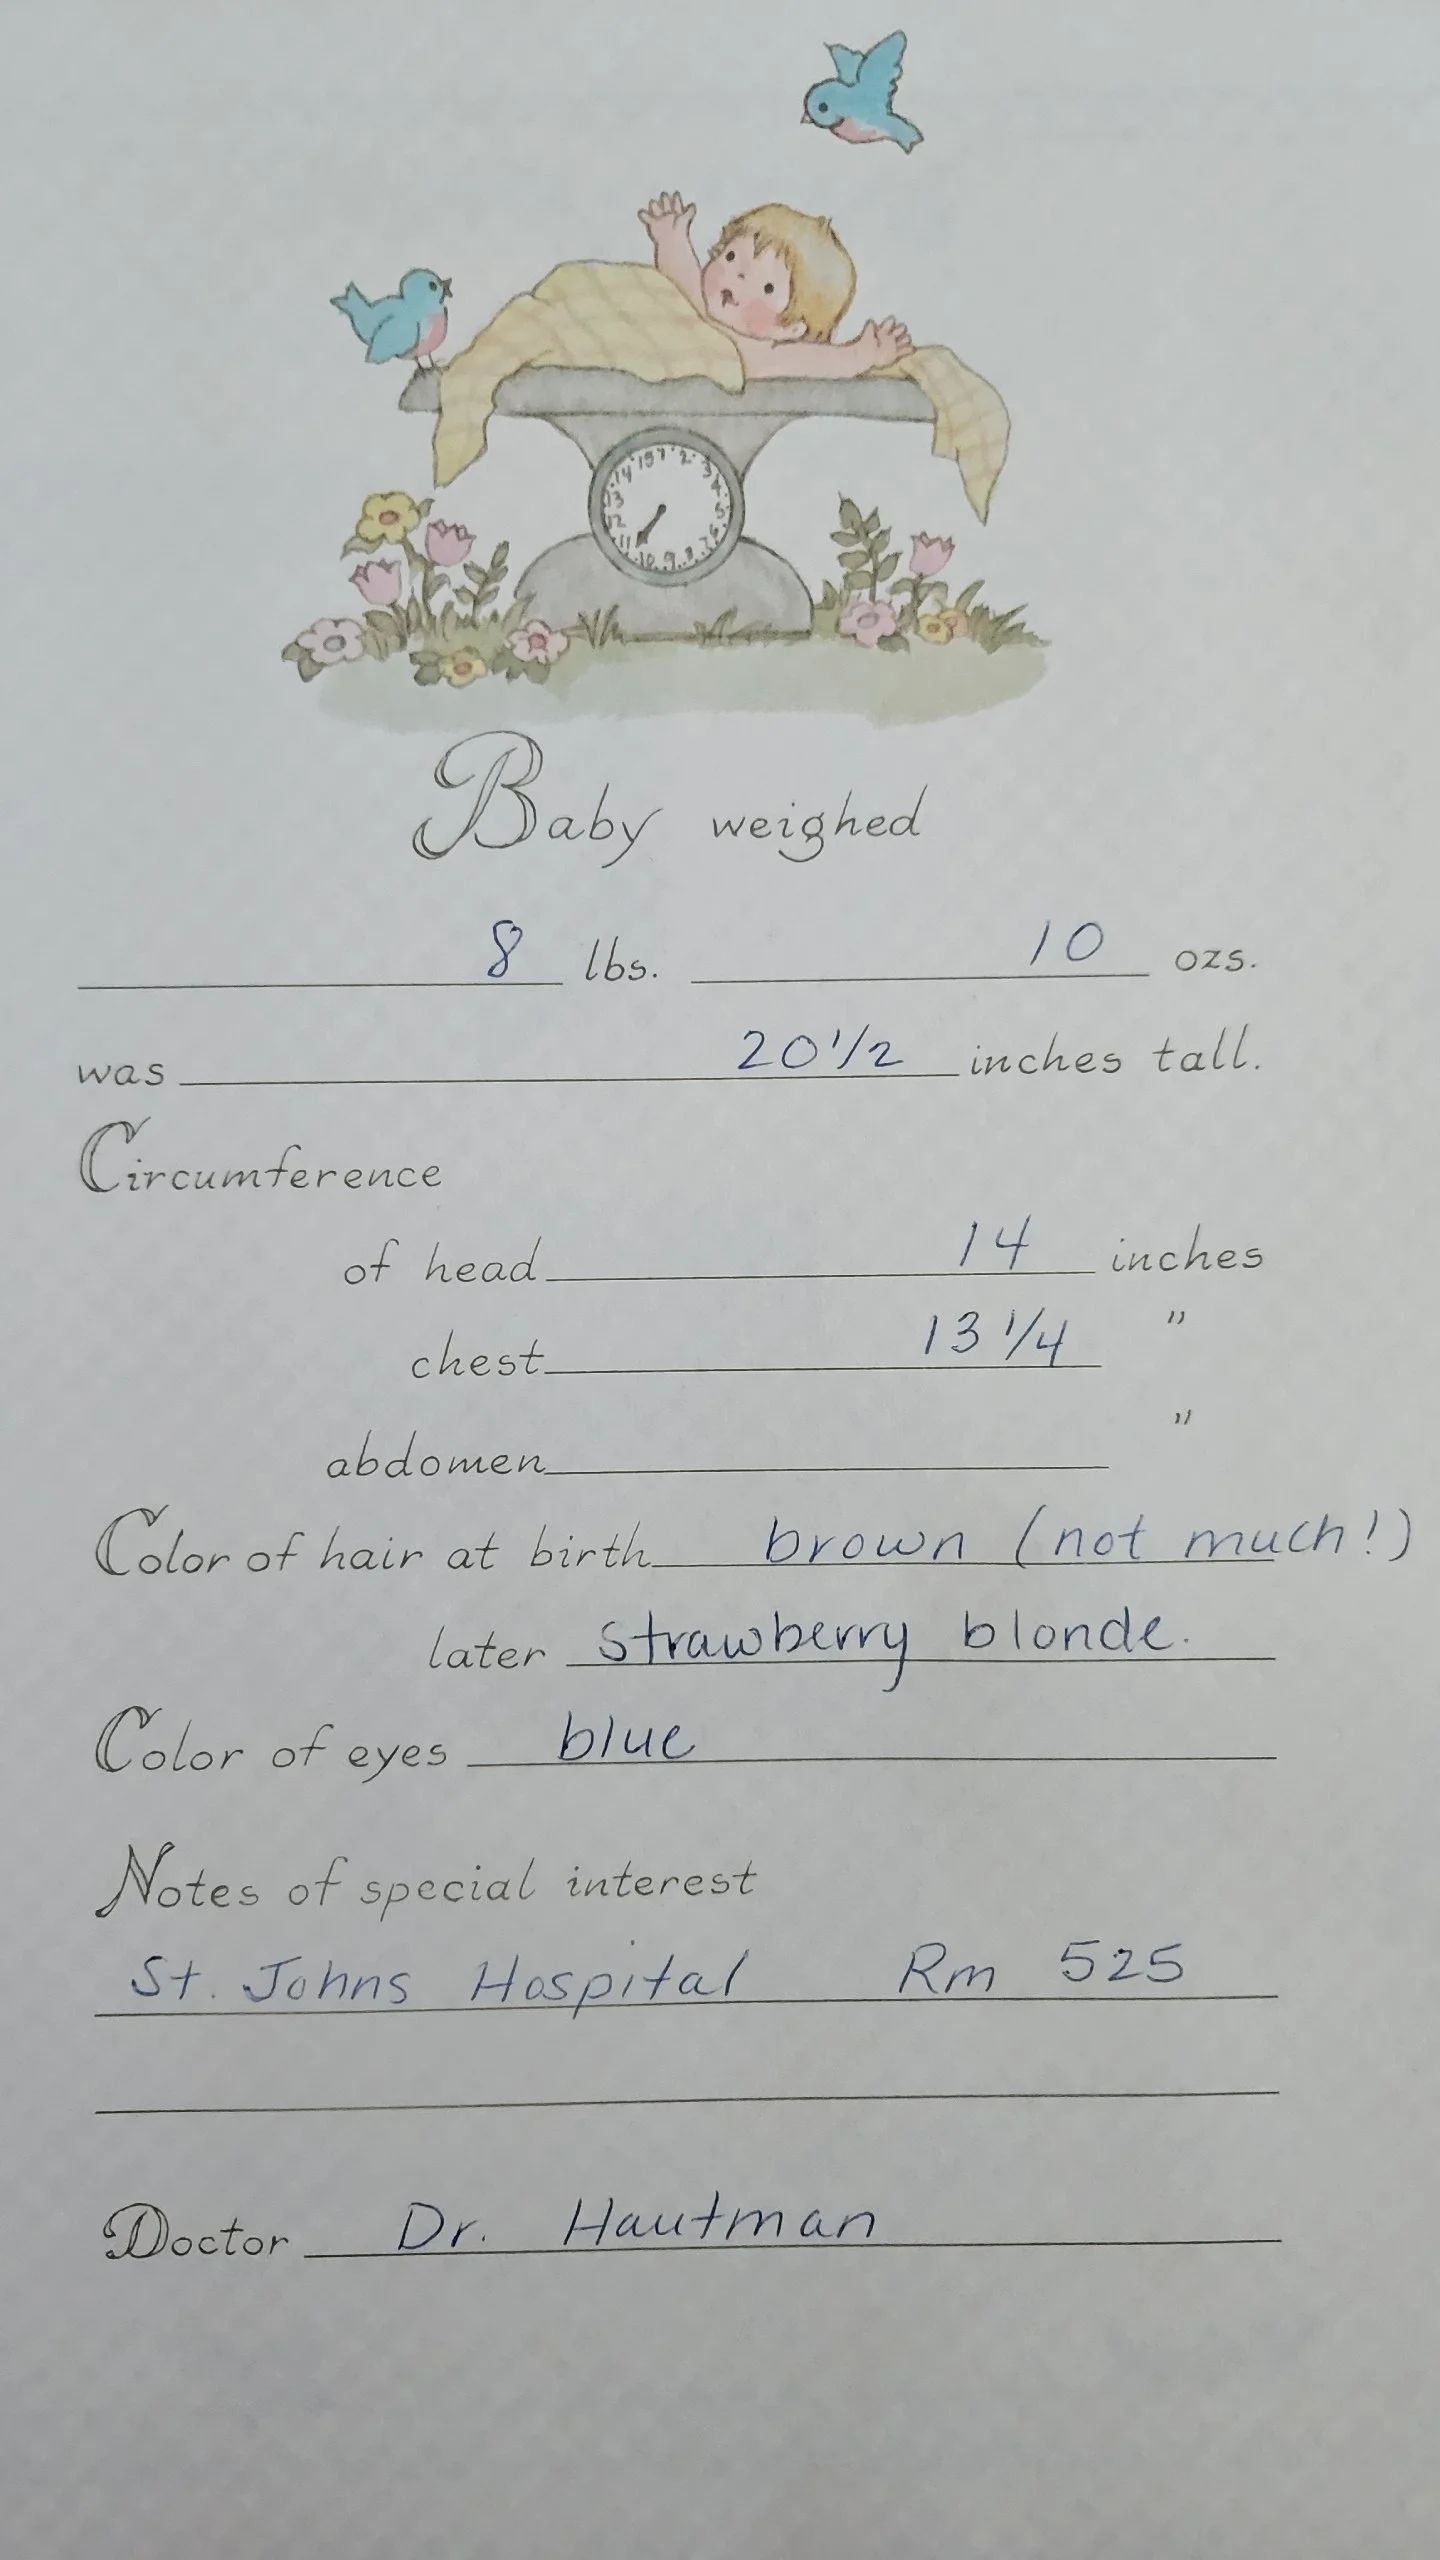 Baby weighed
8 lbs. 10 ozs.
was 20 1/2 inches tall.
Circumference
of head 14 inches
chest 13 1/4 "
abdomen "
Color of hair at birth brown (not much!)
later strawberry blonde.
Color of eyes blue
Notes of special interest
St. Johns Hospital Rm 525
Doctor Dr. Hautman